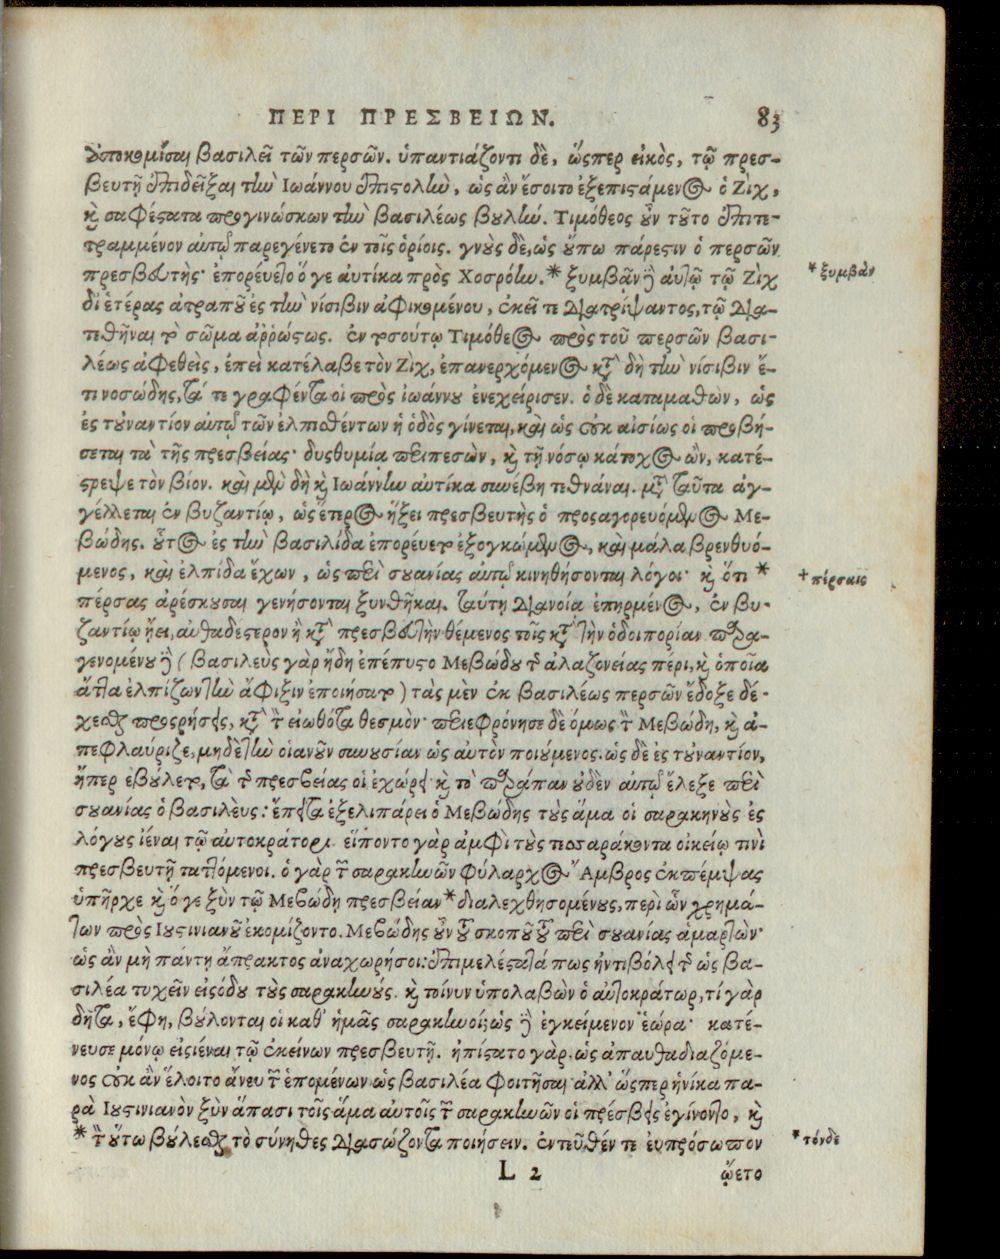 ΠΕΡΙ ΠΡΕΣΒΕΙΩΝ. 83
ἀποκομίσαι βασιλεῖ τῶν περσῶν. ὑπαντιάζοντι δὲ, ὥσπερ εἰκὸς, τῷ πρεσ-
βευτῇ ἐπιδεῖξαι τὴν Ἰωάννου ἐπιστολὴν, ὡς ἂν ἔσοιτο ἐξεπιστάμενος ὁ Ζὶχ,
καὶ σαφέστατα προγινώσκων τὴν βασιλέως βουλήν. Τιμόθεος οὖν τοῦτο ἐπιτε-
τραμμένον αὐτῷ παρεγένετο ἐν τοῖς ὁρίοις. γνοὺς δὲ, ὡς οὔπω πάρεστιν ὁ περσῶν
πρεσβευτὴς· ἐπορεύετο ὅ γε ἀυτίκα πρὸς Χοσρόην. * ξυμβᾶν ἢ αὐτῷ τῷ Ζὶχ
δι' ἑτέρας ἀτραποῦ ἐς τὴν νίσιβιν ἀφικομένου, ἐκεῖ τε διατρίψαντος, τῷ δια-
τιθῆναι τὸ σῶμα ἀῤῥώστως. ἐν τοσούτῳ Τιμόθεος πρὸς τοῦ περσῶν βασι-
λέως ἀφεθεὶς, ἐπεὶ κατέλαβε τὸν Ζὶχ, ἐπανερχόμενος κατὰ δὴ τὴν νίσιβιν ἔ-
τι νοσώδης, τά τε γραφέντα οἱ πρὸς ἰωάννου ἐνεχείρισεν. ὁ δὲ καταμαθὼν, ὡς
ἐς τοὐναντίον αὐτῷ τῶν ἐλπισθέντων ἡ ὁδὸς γίνεται, καὶ ὡς οὐκ αἰσίως οἱ προβή-
σεται τὰ τῆς πρεσβείας· δυσθυμία περιπεσὼν, καὶ τῇ νόσῳ κάτοχος ὢν, κατέ-
στρεψε τὸν βίον. καὶ μὲν δὴ καὶ Ἰωάννην ἀυτίκα συνέβη τεθνάναι. μετὰ ταῦτα ἀγ-
γέλλεται ἐν βυζαντίῳ, ὡς ἕτερος ἥξει πρεσβευτὴς ὁ προσαγορευόμενος Με-
βώδης. οὗτος ἐς τὴν βασιλίδα ἐπορεύετο ἐξογκώμενος, καὶ μάλα βρενθυό-
μενος, καὶ ἐλπίδα ἔχων, ὡς περὶ σουανίας αὐτῷ κινηθήσονται λόγοι· καὶ ὅτι *
πέρσας ἀρέσκουσαι γενήσονται ξυνθῆκαι. ταύτῃ διανοία ἐπηρμένος, ἐν βυ-
ζαντίῳ ᾔει, αὐθαδέστερον ἢ κατὰ πρεσβευτὴν θέμενος τοῖς κατὰ τὴν ὁδοιπορίαν. παρα-
γενομένου ἢ (βασιλεὺς γὰρ ἤδη ἐπέπυστο Μεβώδου τῆς ἀλαζονείας πέρι, καὶ ὁποῖα
ἄττα ἐλπίζων τὴν ἄφιξιν ἐποιήσατο) τὰς μὲν ἐκ βασιλέως περσῶν ἔδοξε δέ-
χεσθαι προσρήσεις, κατὰ τὸν εἰωθότα θεσμὸν· περιεφρόνησε δὲ ὅμως τὸν Μεβώδη, καὶ ἀ-
πεφλαύριζε, μηδέ την οἱανοῦν συνουσίαν ὡς αὐτὸν ποιούμενος. ὡς δὲ ἐς τοὐναντίον,
ἤπερ ἐβούλετο, τὰ τῆς πρεσβείας οἱ ἐχώρει· καὶ τὸ παράπαν οὐδὲν αὐτῷ ἔλεξε περὶ
σουανίας ὁ βασιλεὺς: ἔπειτα ἐξελιπάρει ὁ Μεβώδης τοὺς ἅμα οἱ σαρακηνοὺς ἐς
λόγους ἰέναι τῷ ἀυτοκράτορι. εἵποντο γὰρ ἀμφὶ τοὺς τεσσαράκοντα οἰκείῳ τινὶ
πρεσβευτῇ ταττόμενοι. ὁ γὰρ τῶν σαρακηνῶν φύλαρχος Ἄμβρος ἐκπέμψας
ὑπῆρχε καὶ ὅ γε ξὺν τῷ Μεβώδῃ πρεσβείαν * διαλεχθησομένους, περὶ ὧν χρημά-
των πρὸς Ἰουστινιανοῦ ἐκομίζοντο. Μεβώδης οὖν τοῦ σκοποῦ τοῦ περὶ σουανίας ἁμαρτὼν·
ὡς ἂν μὴ πάντη ἄπρακτος ἀναχωρήσοι: ἐπιμελέστατά πως ἠντιβόλει τῆς ὡς βα-
σιλέα τυχεῖν εἰσόδου τοὺς σαρακηνούς. καὶ τοίνυν ὑπολαβὼν ὁ αὐτοκράτωρ, τί γὰρ
δῆτα, ἔφη, βούλονται οἱ καθ' ἡμᾶς σαρακηνοί; ὡς ἢ ἐγκείμενον ἑώρα· κατέ-
νευσε μόνῳ εἰσιέναι τῷ ἐκείνων πρεσβευτῇ. ἠπίστατο γὰρ, ὡς ἀπαυθαδιαζόμε-
νος οὐκ ἂν ἕλοιτο ἄνευ τῶν ἑπομένων ὡς βασιλέα φοιτῆσαι· ἀλλ' ὥσπερ ἡνίκα πα-
ρὰ Ἰουστινιανὸν ξὺν ἅπασι τοῖς ἅμα αὐτοῖς τῶν σαρακηνῶν οἱ πρέσβεις ἐγίνοντο, καὶ
* τὸν οὕτω βούλεσθαι τὸ σύνηθες διασώζοντα ποιήσειν. ἐντεῦθέν τε εὐπρόσωπον
L 2 ᾤετο
* ξυμβὰν
+ πέρσαις
* τόνδε